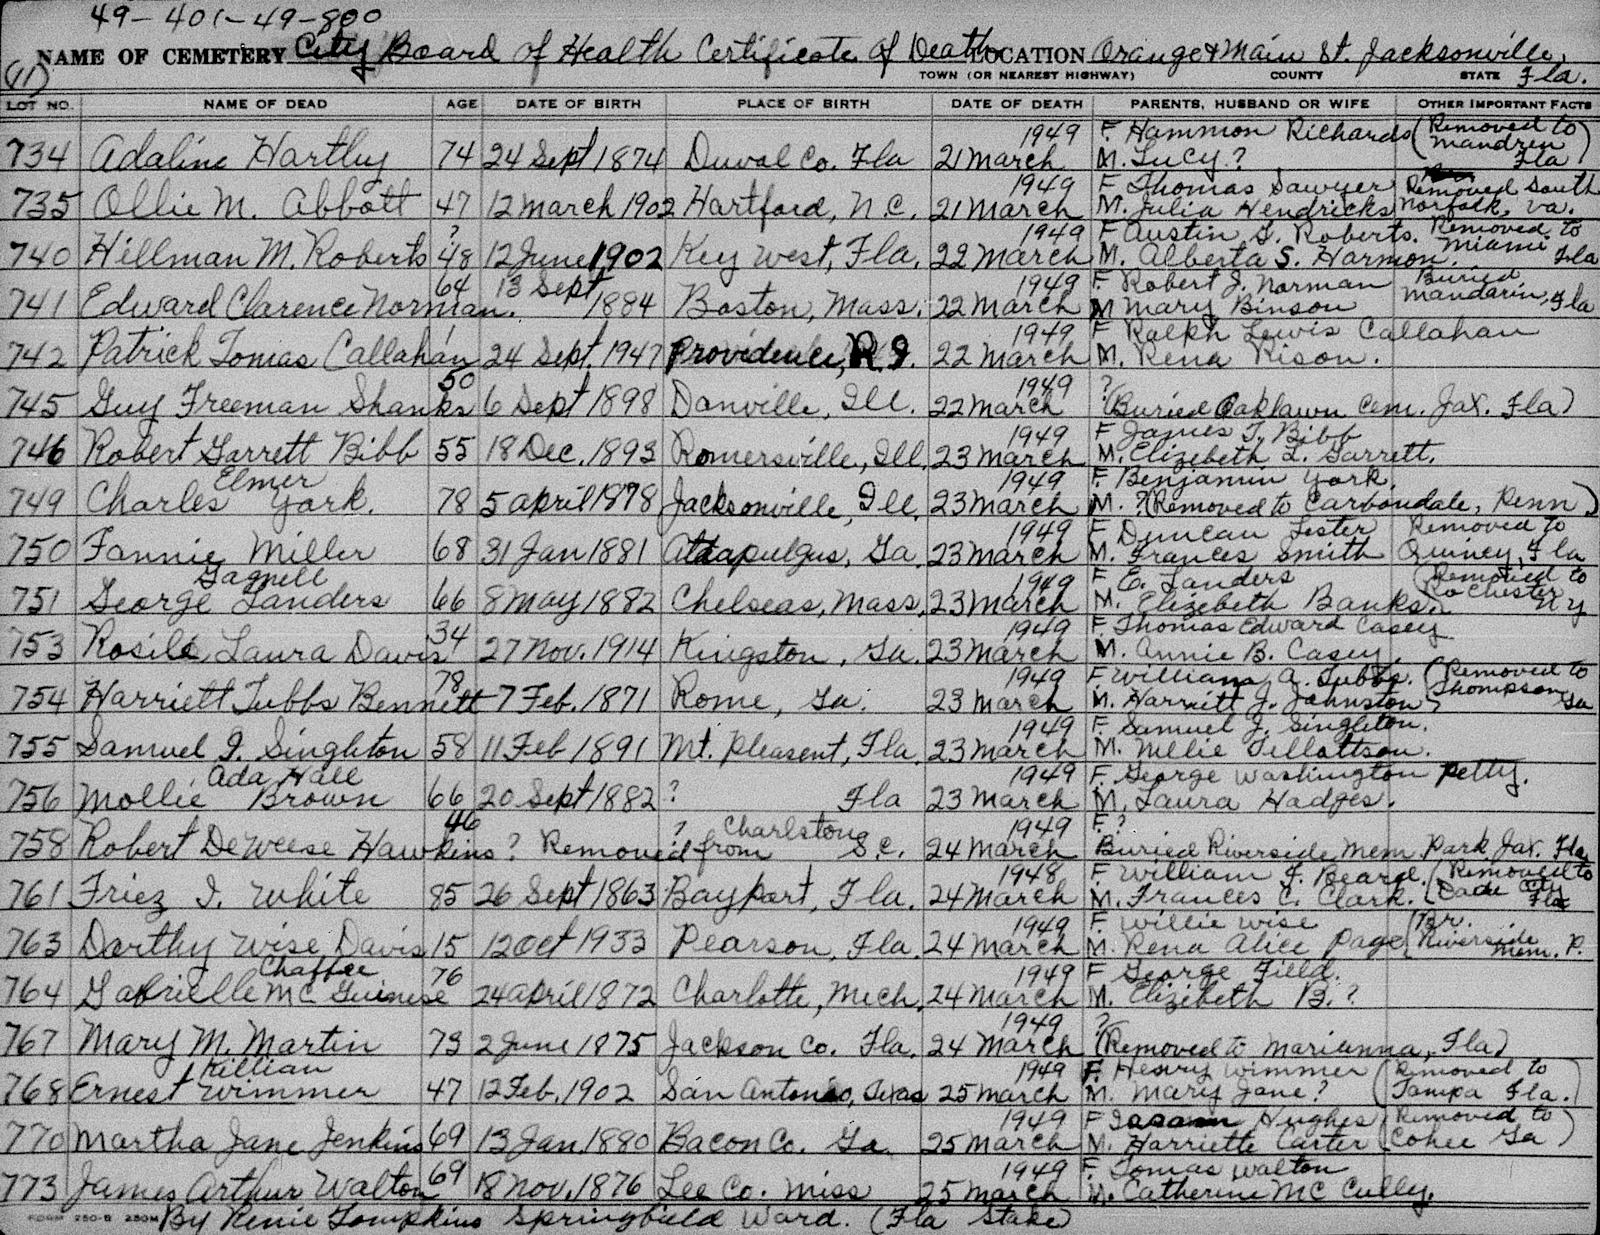 49-401-49-800
NAME OF CEMETERY City Board of Health Certificate of Death LOCATION Orange & Main St. Jacksonville, Fla.
TOWN (OR NEAREST HIGHWAY) COUNTY STATE
(11)
LOT NO. NAME OF DEAD AGE DATE OF BIRTH PLACE OF BIRTH DATE OF DEATH PARENTS, HUSBAND OR WIFE OTHER IMPORTANT FACTS
734 Adaline Hartley 74 24 Sept 1874 Duval Co. Fla 21 March 1949 F. Hammon Richards M. Lucy? (Removed to Mandren Fla)
735 Ollie M. Abbott 47 12 March 1902 Hartford, N.C. 21 March 1949 F Thomas Sawyer M. Julia Hendricks Removed South Norfolk, Va.
740 Hillman M. Roberts ? 48 12 June 1902 Key West, Fla. 22 March 1949 F Austin G. Roberts. M. Alberta S. Harmon. Removed to Miami Fla
741 Edward Clarence Norman. 64 13 Sept 1884 Boston, Mass. 22 March 1949 F. Robert J. Norman M Mary Binson Buried Mandarin, Fla
742 Patrick Tomas Callahan 1 24 Sept. 1947 Providence, R.I. 22 March 1949 F Ralph Lewis Callahan M. Rena Rison.
745 Guy Freeman Shanks 50 6 Sept 1898 Danville, Ill. 22 March 1949 ? (Buried Oaklawn Cem. Jax. Fla)
746 Robert Garrett Bibb 55 18 Dec. 1893 Romersville, Ill. 23 March 1949 F James T. Bibb M. Elizebeth L. Garrett.
749 Charles Elmer York. 78 5 April 1878 Jacksonville, Ill. 23 March 1949 F. Benjamin York. M. ? (Removed to Carbondale, Penn)
750 Fannie Miller 68 31 Jan 1881 Attapulgus, Ga 23 March 1949 F Duncan Lester M. Frances Smith Removed to Quincy, Fla
751 George Gagnell Landers 66 8 May 1882 Chelseas, Mass, 23 March 1949 F E. Landers M. Elizebeth Banks. (Removed to Rochester N Y
753 Rosile Laura Davis 34 27 Nov. 1914 Kingston, Ga. 23 March 1949 F. Thomas Edward Casey M. Annie B. Casey.
754 Harriett Tubbs Bennett 78 7 Feb. 1871 Rome, Ga. 23 March 1949 F William A. Tubbs. M. Harriett J. Johnston, (Removed to Thompson Ga
755 Samuel J. Singleton 58 11 Feb 1891 Mt. Pleasent, Fla 23 March 1949 F. Samuel J. Singleton. M. Nellie Tillottson.
756 Mollie Ada Hall Brown 66 20 Sept 1882 ? Fla 23 March 1949 F. George Washington Petty. M. Laura Hadges.
758 Robert DeWeese Hawkins 46 ? Removed from ? Charlston S.C. 24 March 1949 F. ? Buried Riverside Mem. Park Jax. Fla
761 Friez I. White 85 26 Sept 1863 Bayport, Fla. 24 March 1948 F William J. Beard. M. Frances C. Clark. (Removed to Dade City Fla
763 Dorthy Wise Davis 15 12 Oct 1933 Pearson, Fla. 24 March 1949 F. Willie Wise M. Rena Alice Page (Br. Riverside Mem. P.
764 Gabrielle Chaffee McGuinese 76 24 April 1872 Charlotte, Mich, 24 March 1949 F George Field. M. Elizebeth B.?
767 Mary M. Martin 73 2 June 1875 Jackson Co. Fla. 24 March 1949 ? (Removed to Marianna, Fla)
768 Ernest Killian Wimmer 47 12 Feb. 1902 San Antonio, Texas 25 March 1949 F. Henry Wimmer M. Mary Jane? (Removed to Tampa Fla.)
770 Martha Jane Jenkins 69 13 Jan. 1880 Bacon Co. Ga. 25 March 1949 F Hughes M. Harriette Carter (Removed to Cohee Ga)
773 James Arthur Walton 69 18 Nov. 1876 Lee Co. Miss 25 March 1949 F. Tomas Walton M. Catherine McCulley.
FORM 250-B 250M By Renie Tompkins Springfield Ward. (Fla Stake)